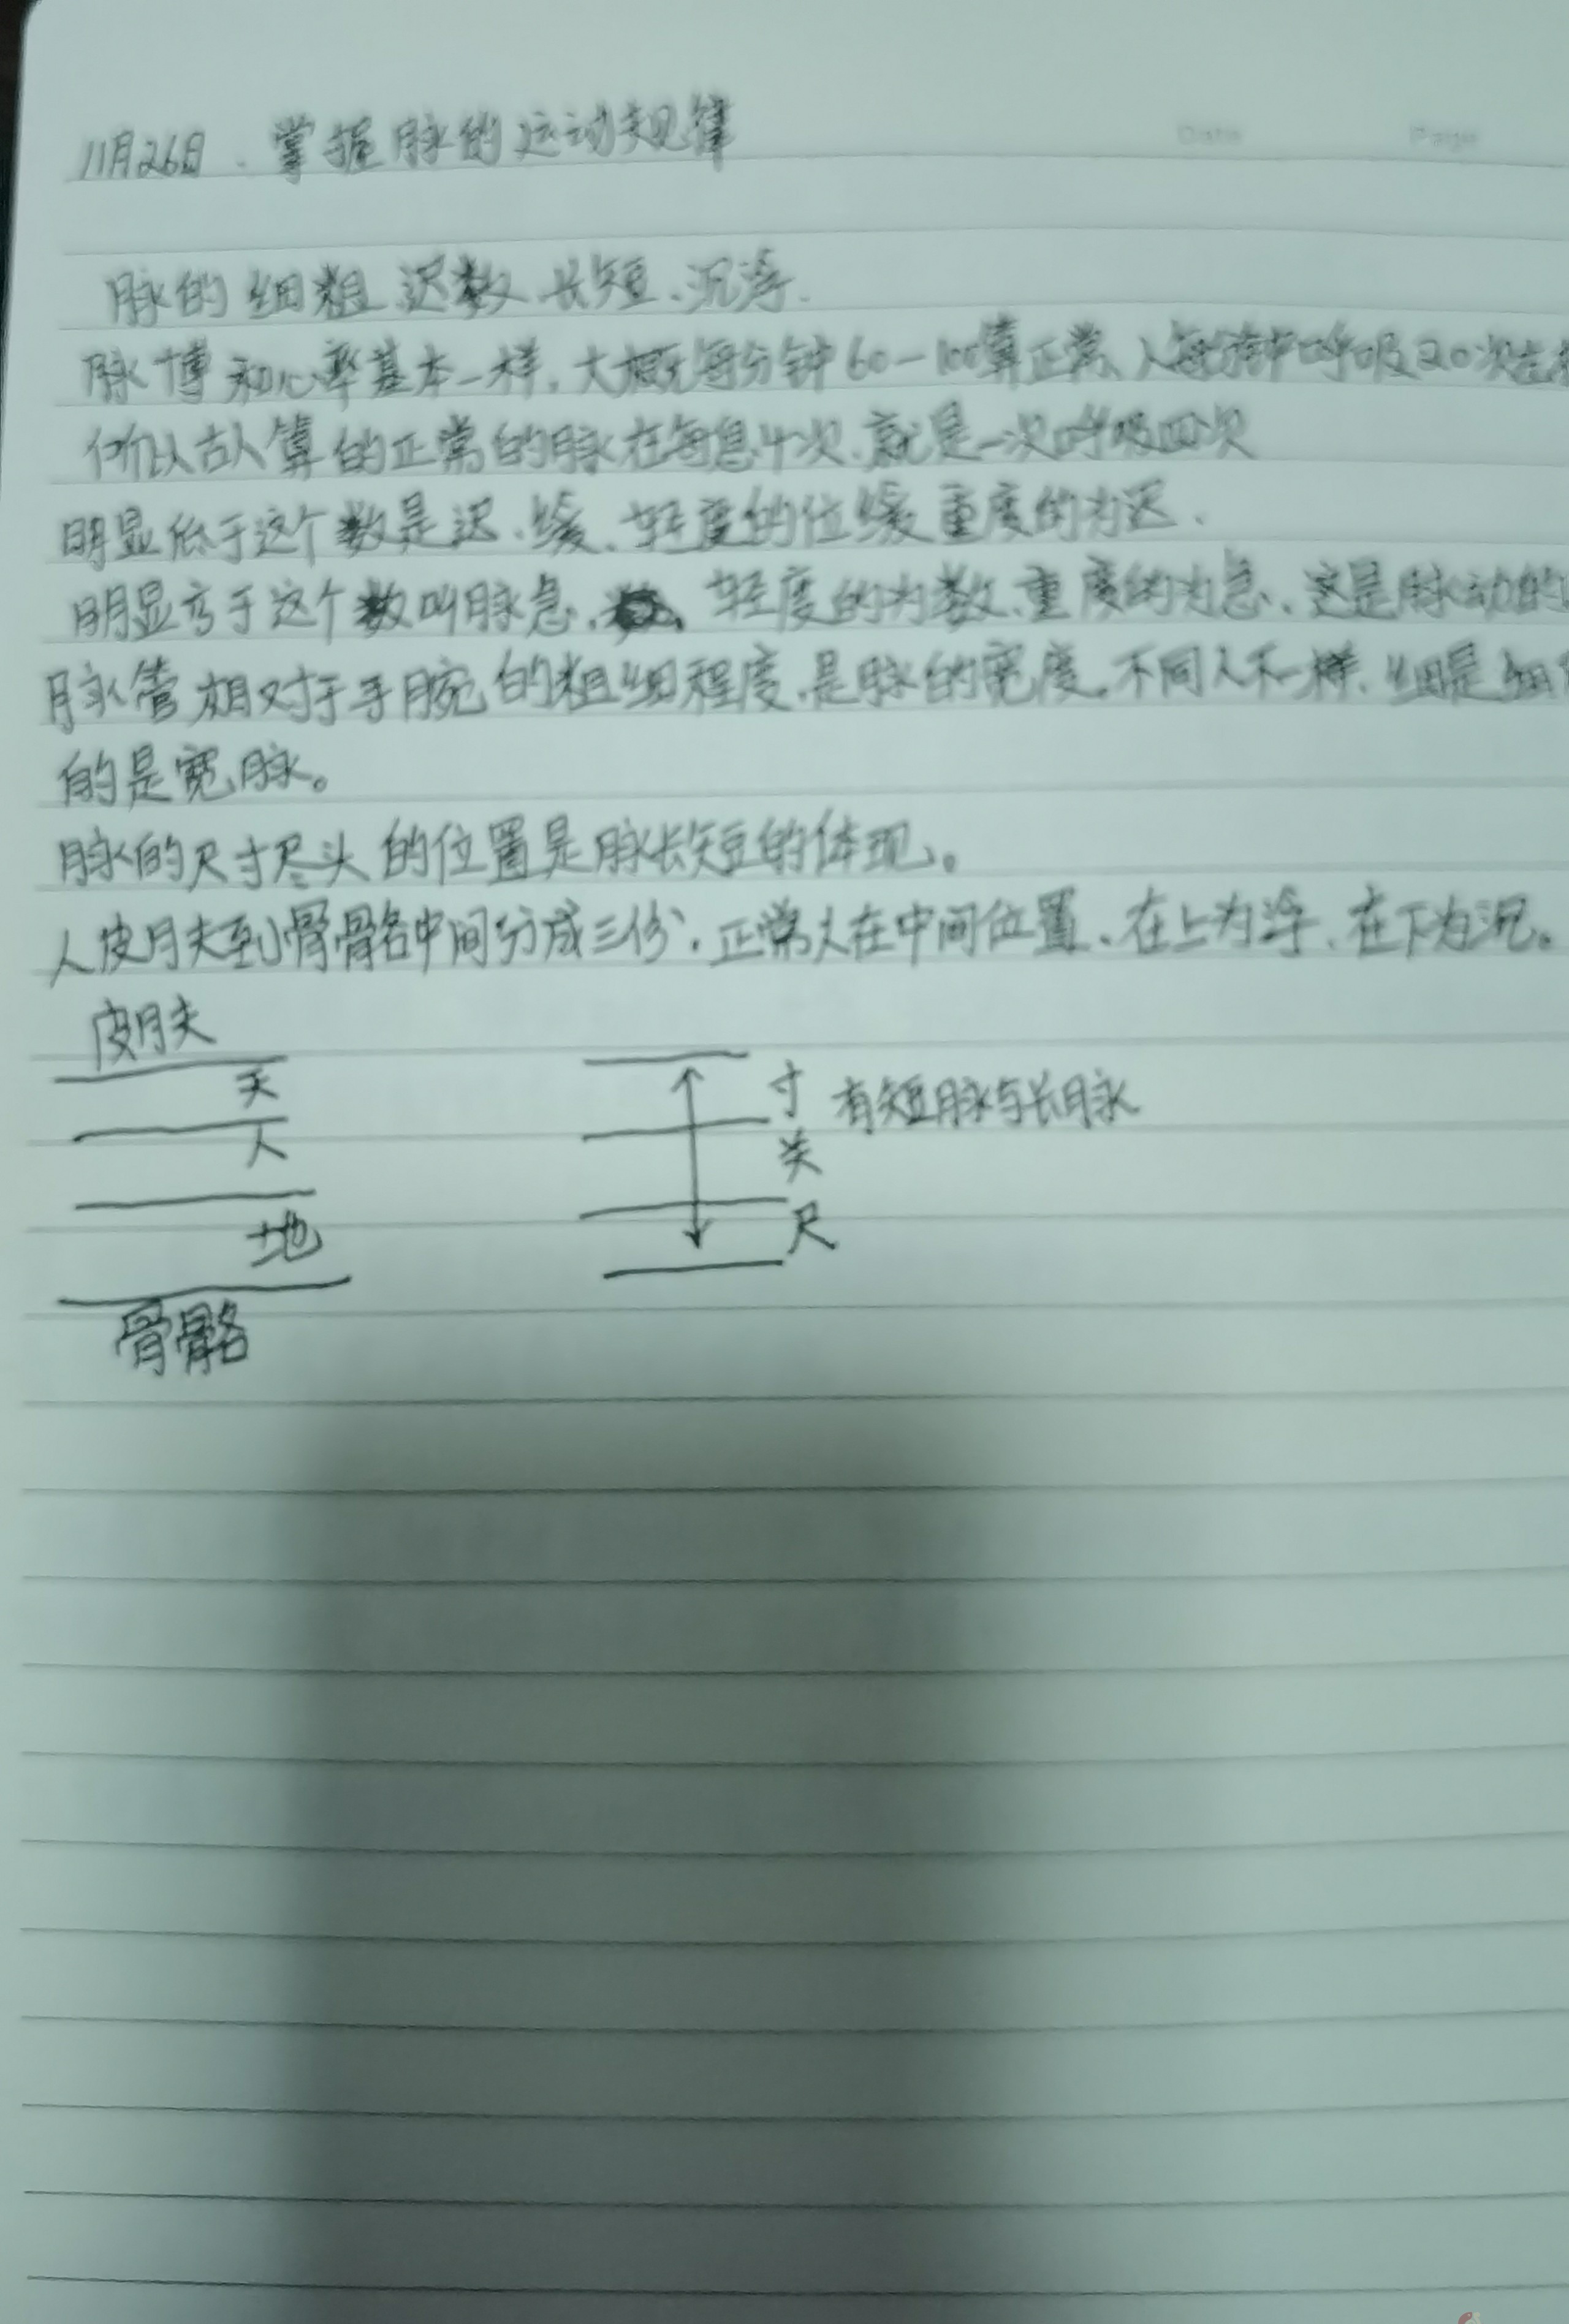 Date Page
11月26日.掌握脉的运动规律
脉的细粗 迟数、长短、沉浮.
脉博和心率基本一样,大概每分钟60-100算正常、人每分钟呼吸20次左
所以古人算的正常的脉在每息4次.就是一次呼吸四次
明显低于这个数是迟.缓、轻度的位缓重度的为迟.
明显高于这个数叫脉急、轻度的为数、重度的为急、这是脉动的
脉管相对于手腕的粗细程度.是脉的宽度.不同人不一样.细是细
的是宽脉。
脉的尺寸尽头的位置是脉长短的体现。
人皮肤到骨骼中间分成三份,正常人在中间位置、在上为浮、在下为沉。
皮肤
天
人
地
骨骼
寸 有短脉与长脉
关
尺